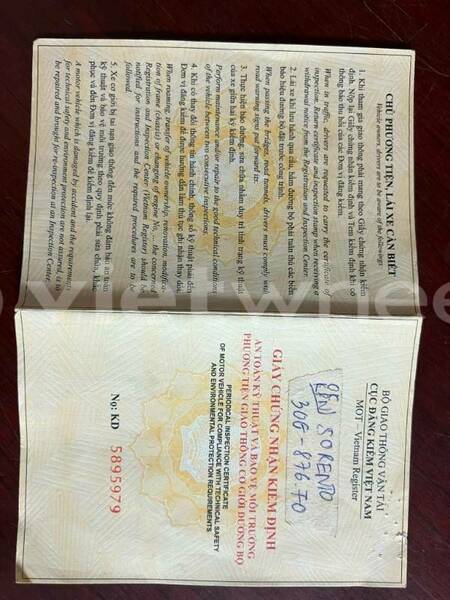 CHỦ PHƯƠNG TIỆN, LÁI XE CẦN BIẾT
Vehicle owners, drivers have to be aware of the followings
1. Khi tham gia giao thông phải mang theo Giấy chứng nhận kiểm
định. Nộp lại Giấy chứng nhận kiểm định và Tem kiểm định khi có
thông báo thu hồi của các Đơn vị đăng kiểm.
When in traffic, drivers are requested to carry the certificate of
inspection. Return certificate and inspection stamp when receiving a
withdrawal notice from the Registration and Inspection Center.
2. Lái xe khi lưu hành qua cầu, hầm đường bộ phải tuân thủ các biển
báo hiệu đường bộ đặt trước công trình.
When passing the bridges, road tunnels, drivers must comply with
road warning signs put forward its.
3. Thực hiện bảo dưỡng, sửa chữa nhằm duy trì tình trạng kỹ thuật
của xe giữa hai kỳ kiểm định.
Perform maintenance and/or repair to the good technical condition
of the vehicle between two consecutive inspections.
4. Khi có thay đổi thông tin hành chính, thông số kỹ thuật phải đến
Đơn vị đăng kiểm để được hướng dẫn làm thủ tục ghi nhận thay đổi.
When roaming, transfer of vehicle ownership, renovation, modifica-
tion of frame (chassis) or change of engine No., the concerned
Registration and Inspection Center (Vietnam Register) should be
notified for instructions and the required procedures are to be
followed.
5. Xe cơ giới bị tai nạn giao thông đến mức không đảm bảo an toàn
kỹ thuật và bảo vệ môi trường theo quy định phải sửa chữa, khắc
phục và đến Đơn vị đăng kiểm để kiểm định lại.
A motor vehicle which is damaged by accident and the requirements
for technical safety and environment protection are not assured, is to
be repaired and brought for re-inspection at an Inspection Center.
BỘ GIAO THÔNG VẬN TẢI
CỤC ĐĂNG KIỂM VIỆT NAM
MOT – Vietnam Register
SORENTO
30G-87670
GIẤY CHỨNG NHẬN KIỂM ĐỊNH
AN TOÀN KỸ THUẬT VÀ BẢO VỆ MÔI TRƯỜNG
PHƯƠNG TIỆN GIAO THÔNG CƠ GIỚI ĐƯỜNG BỘ
PERIODICAL INSPECTION CERTIFICATE
OF MOTOR VEHICLE FOR COMPLIANCE WITH TECHNICAL SAFETY
AND ENVIRONMENTAL PROTECTION REQUIREMENTS
No: KD 5895979